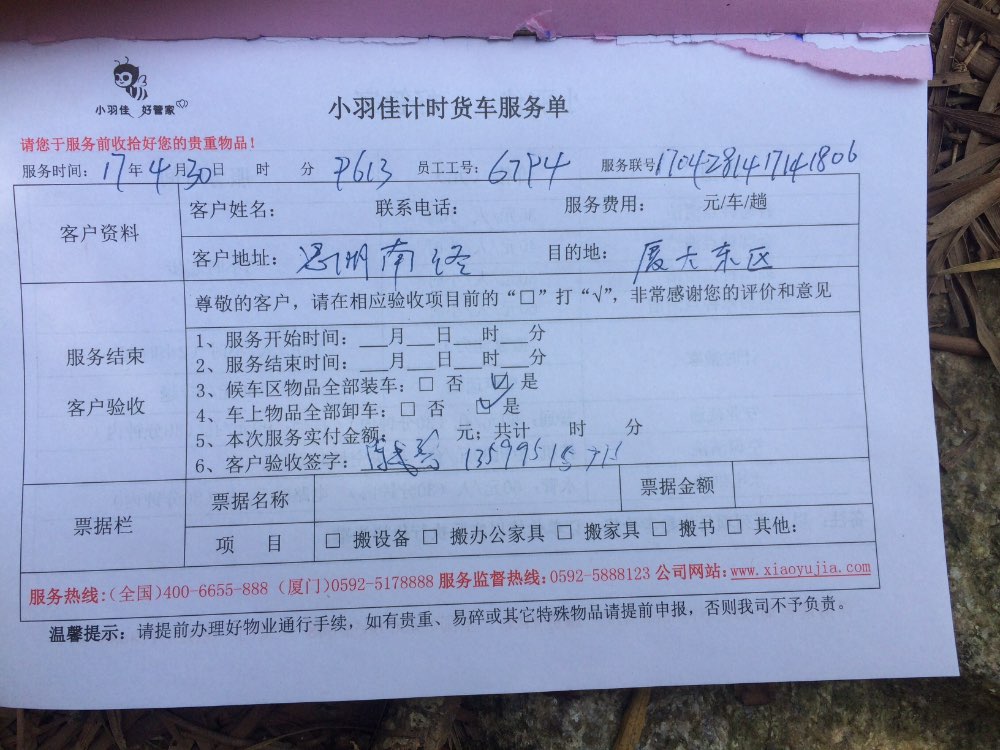 小羽佳 好管家
小羽佳计时货车服务单
请您于服务前收拾好您的贵重物品！
服务时间：17年4月30日 时 分 P613 员工工号：67P4 服务联号1704281417141806
客户资料
客户姓名： 联系电话： 服务费用： 元/车/趟
客户地址：思明南经 目的地：厦大东区
服务结束
客户验收
尊敬的客户，请在相应验收项目前的“□”打“√”，非常感谢您的评价和意见
1、服务开始时间：___月___日___时___分
2、服务结束时间：___月___日___时___分
3、候车区物品全部装车：□ 否 ☑ 是
4、车上物品全部卸车：□ 否 ☑ 是
5、本次服务实付金额： 元；共计 时 分
6、客户验收签字：
票据栏
票据名称 票据金额
项 目 □ 搬设备 □ 搬办公家具 □ 搬家具 □ 搬书 □ 其他：
服务热线：（全国）400-6655-888（厦门）0592-5178888 服务监督热线：0592-5888123 公司网站：www.xiaoyujia.com
温馨提示：请提前办理好物业通行手续，如有贵重、易碎或其它特殊物品请提前申报，否则我司不予负责。